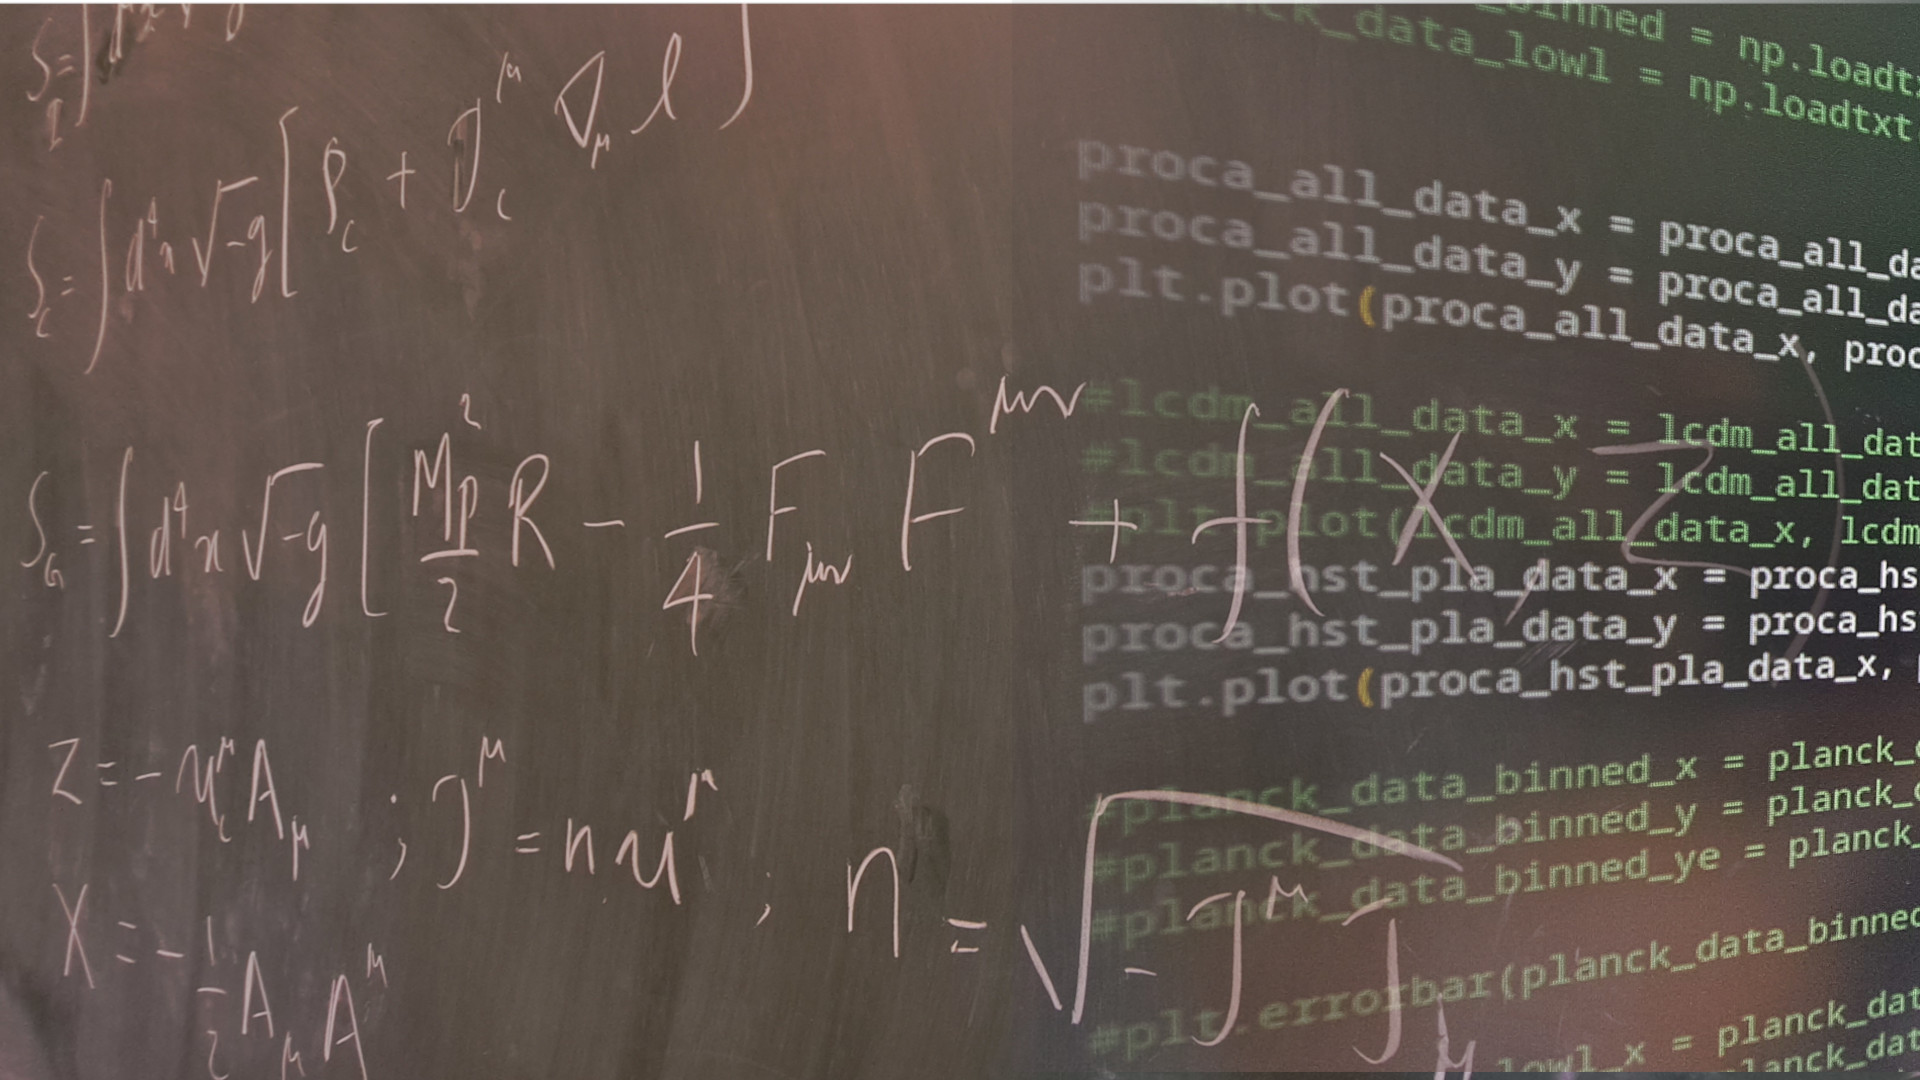 S_c = ∫ d⁴x √-g [ ρ_c + J_c^μ ∇_μ l ]
S_G = ∫ d⁴x √-g [ M_p²/2 R - 1/4 F_μν F^μν + f(X, Z)
Z = - u_c^μ A_μ ; J^μ = n u^μ ; n = √-J^μ J_μ
X = - 1/2 A_μ A^μ
binned = np.loadt
ck_data_lowl = np.loadtxt
proca_all_data_x = proca_all_da
proca_all_data_y = proca_all_da
plt.plot(proca_all_data_x, proc
#lcdm_all_data_x = lcdm_all_dat
#lcdm_all_data_y = lcdm_all_dat
#plt.plot(lcdm_all_data_x, lcdm
proca_hst_pla_data_x = proca_hs
proca_hst_pla_data_y = proca_hs
plt.plot(proca_hst_pla_data_x,
#planck_data_binned_x = planck_
#planck_data_binned_y = planck_
#planck_data_binned_ye = planck_
#plt.errorbar(planck_data_binned
lowl_x = planck_dat
lanck_dat